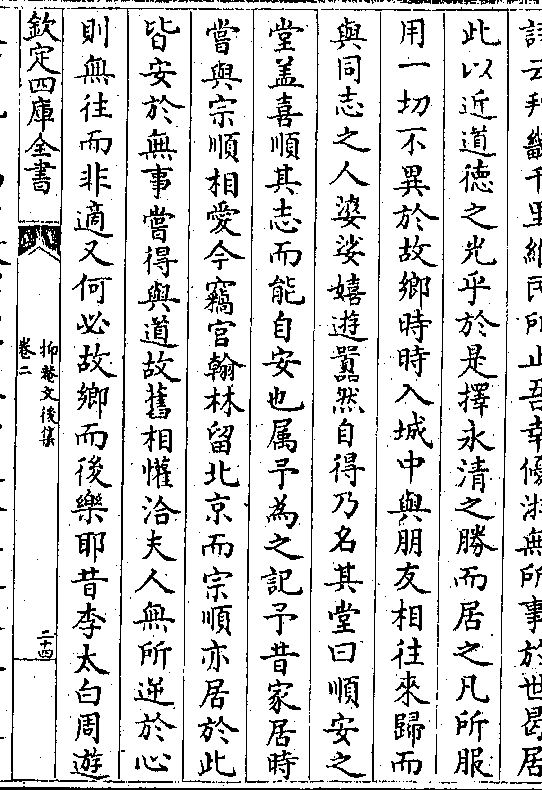 詩云邦畿千里維民所止吾幸優游無所事於世曷居
此以近道徳之光乎於是擇永清之勝而居之凡所服
用一切不異於故鄉時時入城中與朋友相徃來歸而
與同志之人婆娑嬉遊囂然自得乃名其堂曰順安之
堂盖喜順其志而能自安也属予為之記予昔家居時
嘗與宗順相愛今竊官翰林留北京而宗順亦居於此
皆安於無事嘗得與道故舊相懽洽夫人無所逆於心
則無徃而非適又何必故鄉而後樂耶昔李太白周遊
欽定四庫全書
抑菴文後集
卷二
二十四